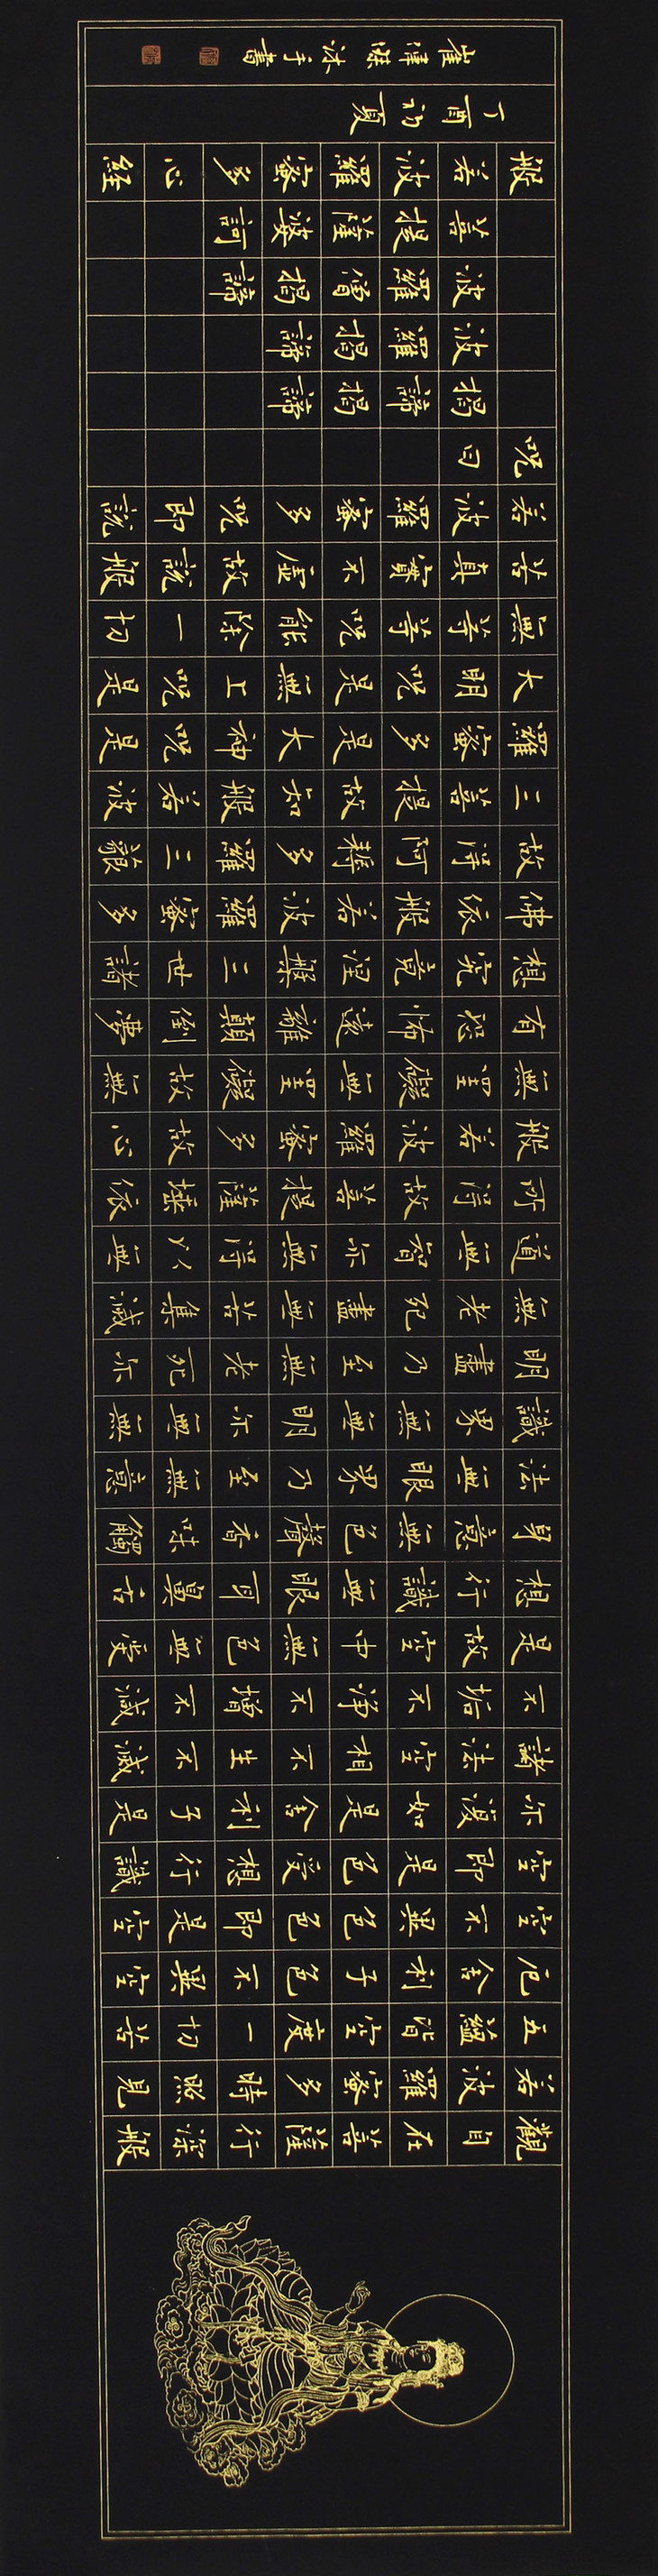 觀自在菩薩行深般
若波羅蜜多時照見
五蘊皆空度一切苦
厄舍利子色不異空
空不異色色即是空
空即是色受想行識
亦復如是舍利子是
諸法空相不生不滅
不垢不淨不增不減
是故空中無色無受
想行識無眼耳鼻舌
身意無色聲香味觸
法無眼界乃至無意
識界無無明亦無無
明盡乃至無老死亦
無老死盡無苦集滅
道無智亦無得以無
所得故菩提薩埵依
般若波羅蜜多故心
無罣礙無罣礙故無
有恐怖遠離顛倒夢
想究竟涅槃三世諸
佛依般若波羅蜜多
故得阿耨多羅三藐
三菩提故知般若波
羅蜜多是大神呪是
大明呪是無上呪是
無等等呪能除一切
苦真實不虛故說般
若波羅蜜多呪即說
呪曰
揭諦揭諦
波羅揭諦
波羅僧揭諦
菩提薩婆訶
般若波羅蜜多心經
丁酉初夏
崔沐手書